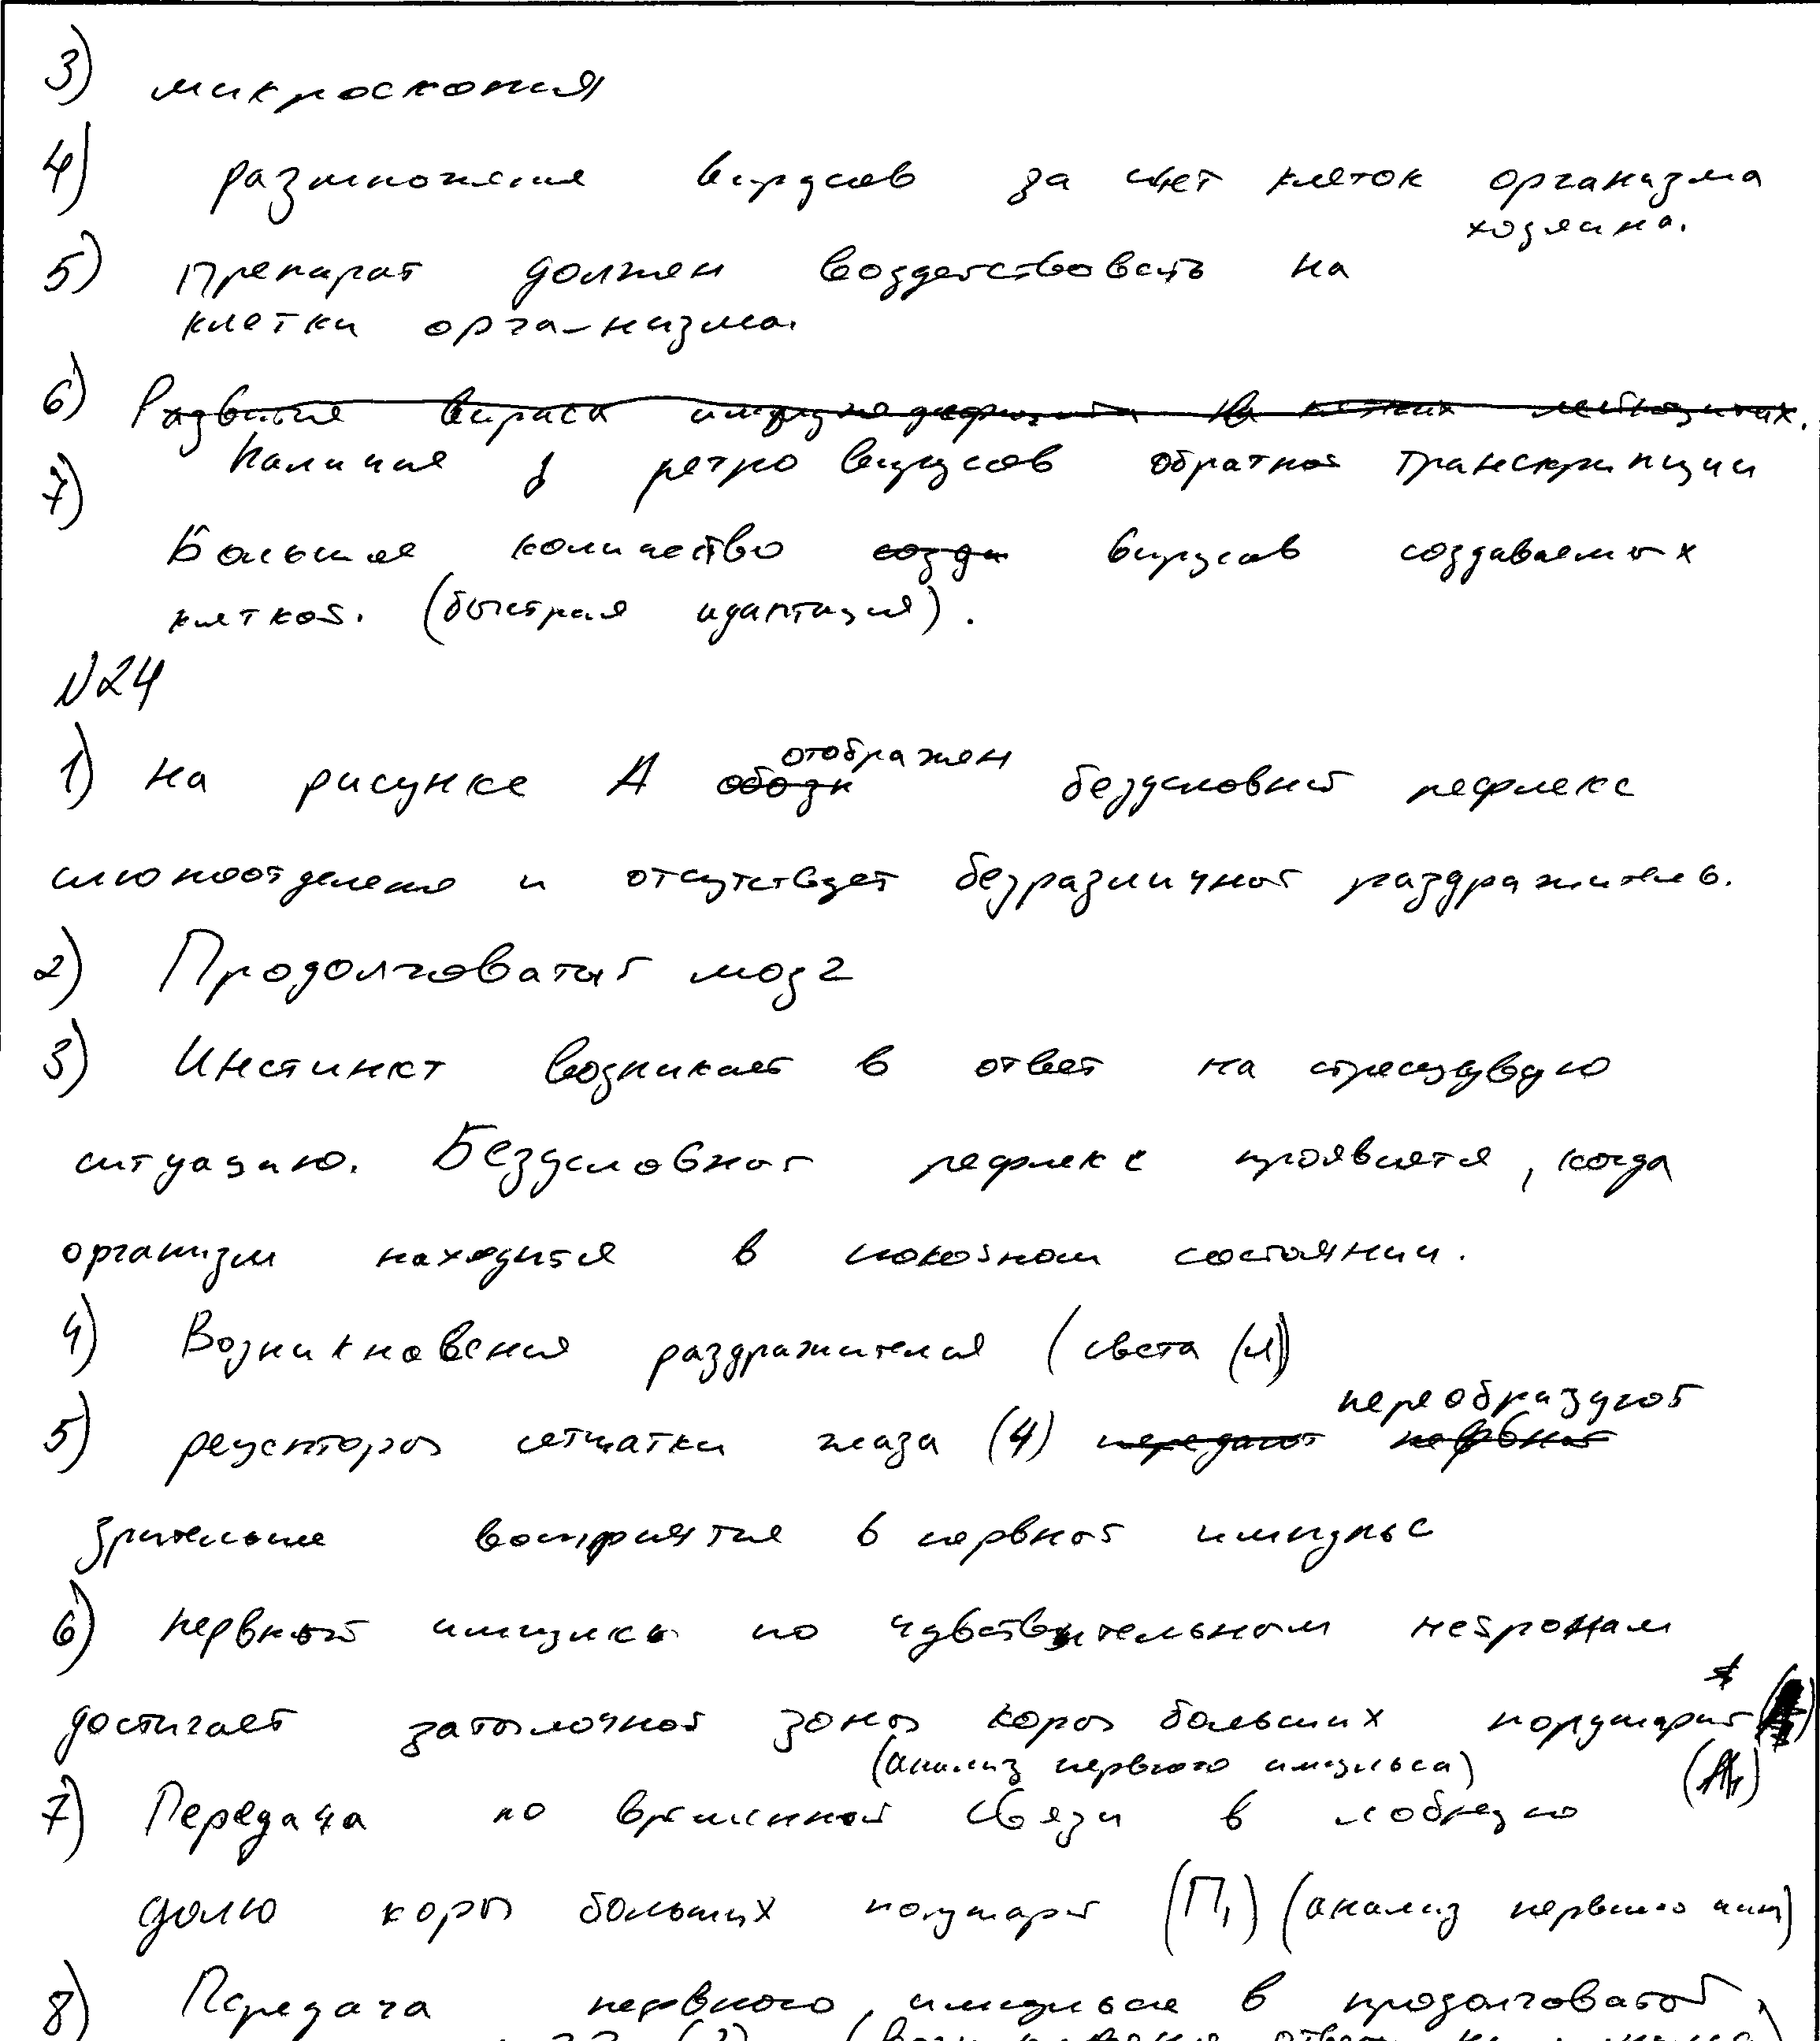 3) микроскопия
4) размножение вирусов за счет клеток организма
хозяина.
5) Препарат должен воздействовать на
клетки орга-низма.
6) Развитие вируса иммунодефицита на
Наличие у ретро вирусов обратной транскрипции
7)
Большое количество созда вирусов создаваемых
клеткой. (быстрая адаптация).
№24
1) На рисунке А обозн отображен безусловный рефлекс
слюноотделения и отсутствует безразличный раздражитель.
2) Продолговатый мозг
3) Инстинкт возникает в ответ на
ситуацию. Безусловный рефлекс проявляется, когда
организм находится в спокойном состоянии.
4) Возникновения раздражителя (света
5) рецепторы сетчатки глаза (4) передают нервный преобразуют
зрительные восприятие в нервный импульс
6) нервный импульс по чувствительным нейронам
достигает затылочной зоны коры больших полушарий
(анализ нервного импульса)
7) Передача по временной связи в лобную
долю коры больших полушарий (П1) (анализ нервного имп)
8) Передача нервного импульса в продолговатый